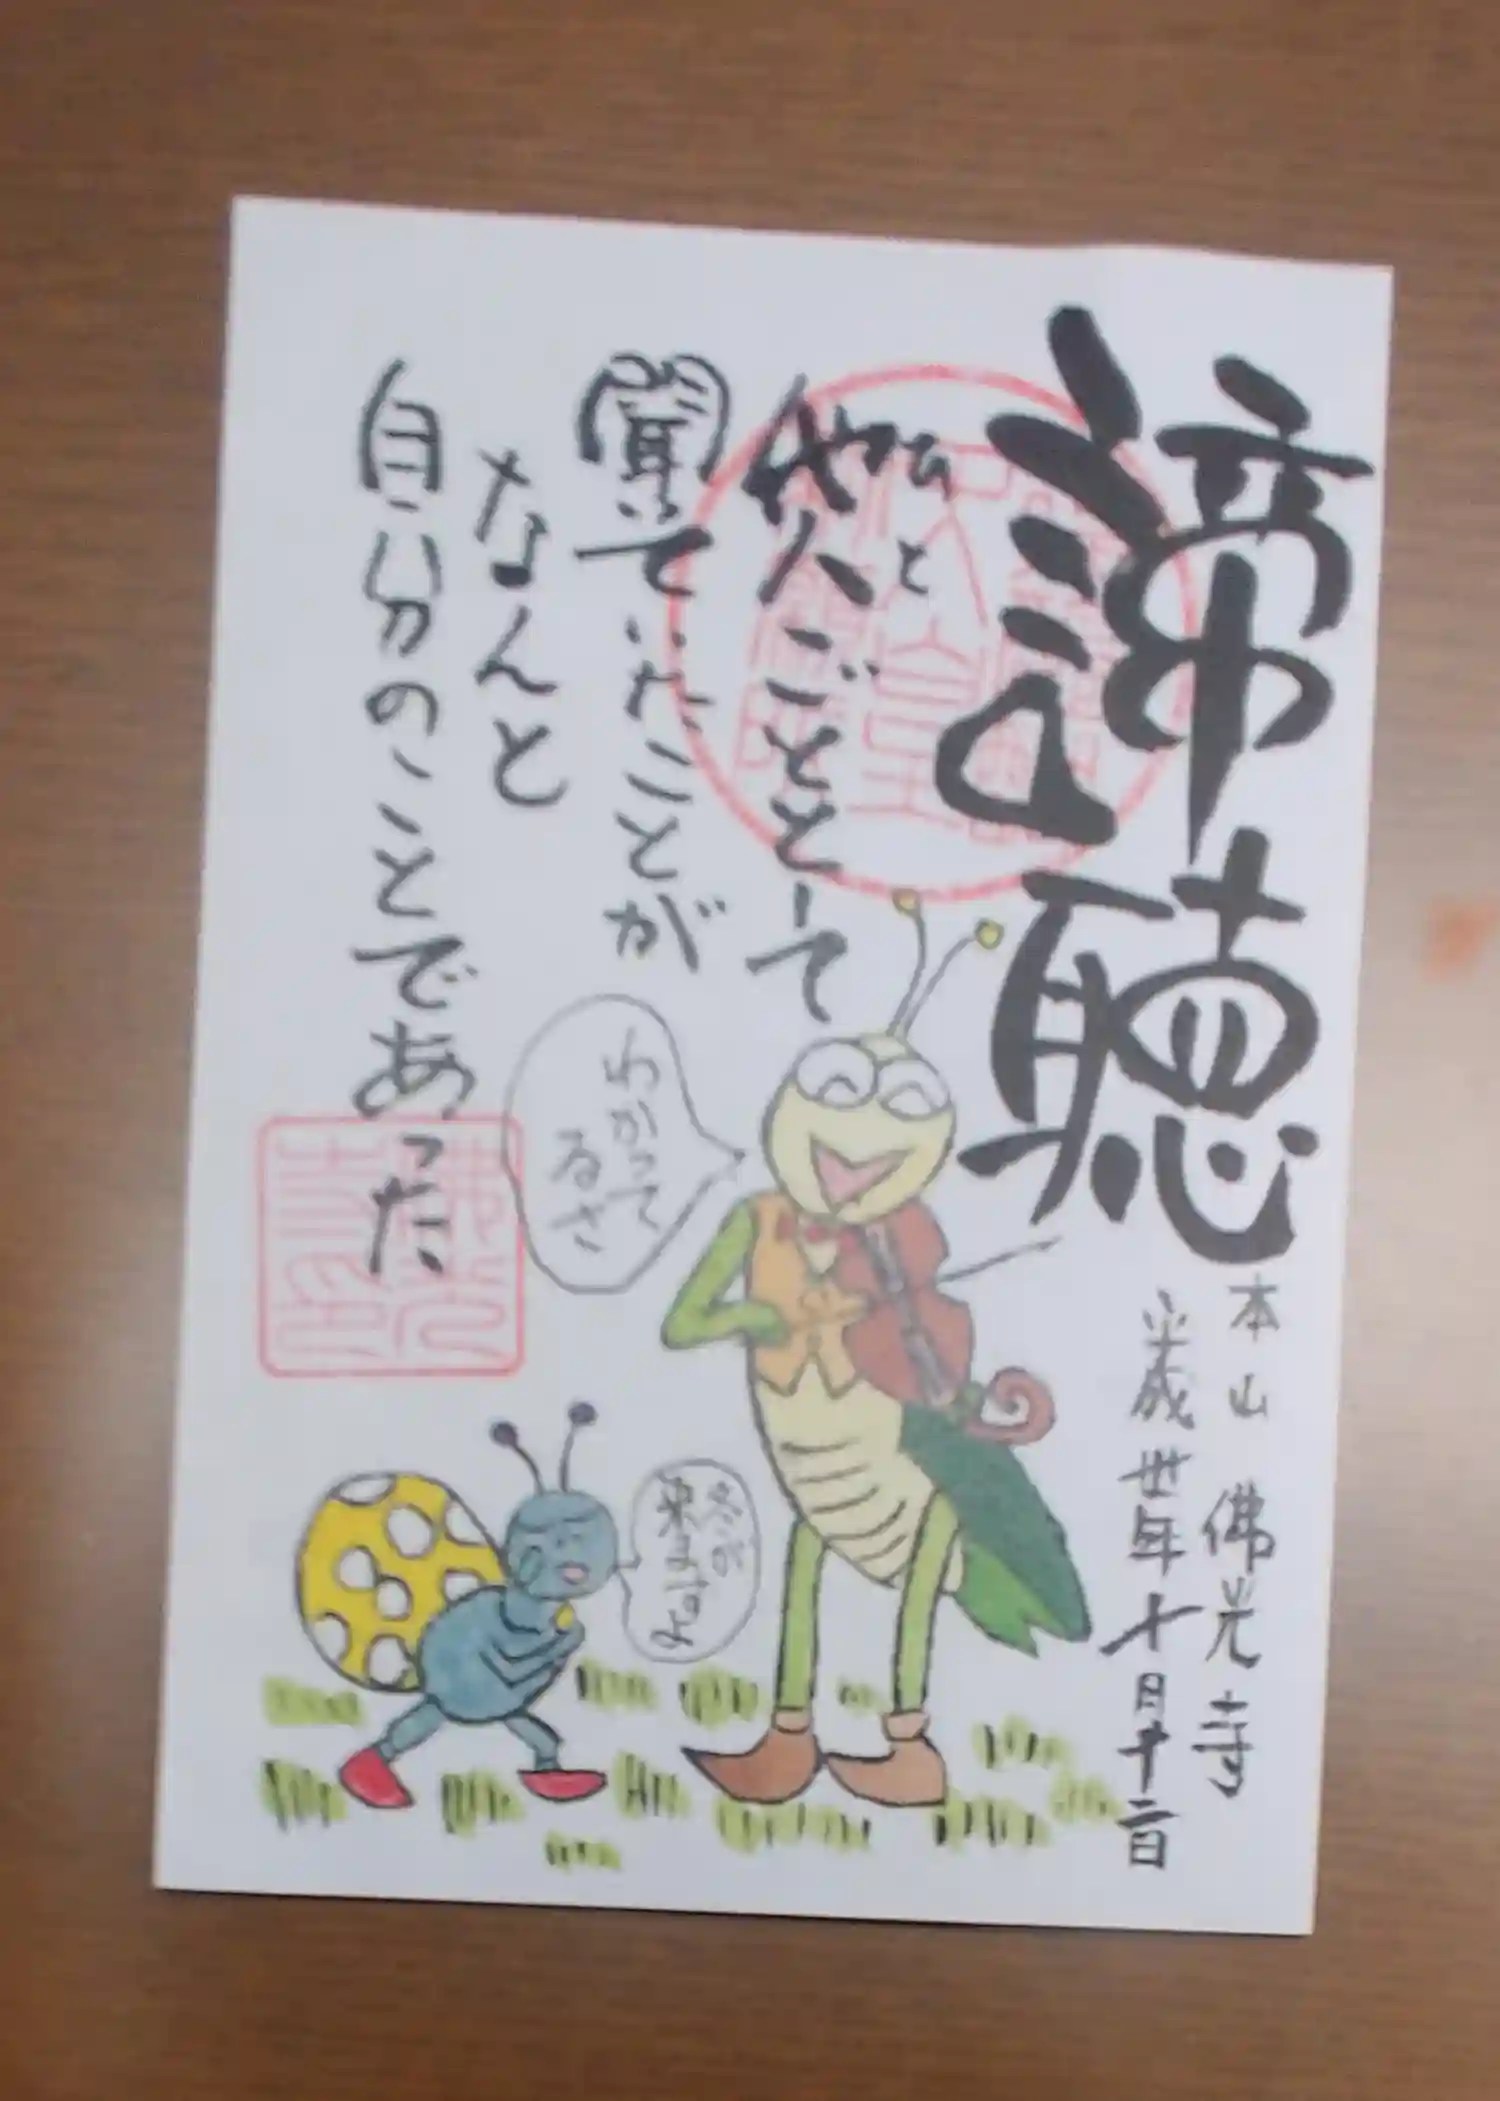 諦聴
本山 佛光寺
平成卅年十月十二日
ひと
他人ごととして
聞いていたことが
なんと
自分のことであった
わかって
るさ
冬が
来ますよ